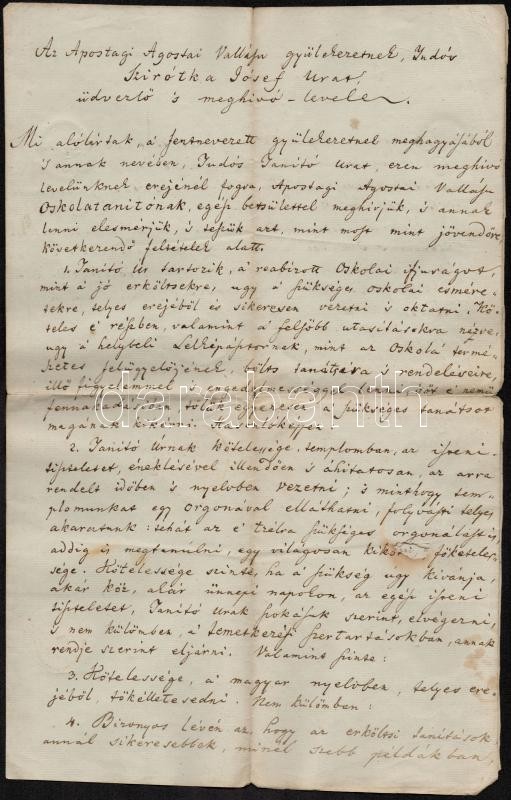 Az Apostagi Agostai Vallásu gyülekezetnek, Tudós
Szirótka Jósef Urat,
üdvezlő 's meghivó-levele.
Mi alólírtak, a' fentnevezett gyülekezetnek meghagyásából
's annak nevében, Tudós Tanító Urat, ezen meghivó
levelünknek erejénél fogva, Apostagi Agostai Vallásu
Oskolatanitónak, egész betsülettel meghivjuk, 's annak
lenni elesmérjük, 's teszük azt, mint most mint jövendőre,
következendő feltételek alatt.
1. Tanító Úr tartozik, a' reabízott Oskolai ifjuságot,
mint a' jó erköltsekre, ugy a' szükséges oskolai esmére-
tekre, teljes erejéből és sikeresen vezetni 's oktatni. Kö-
teles e' részben, valamint a' felsőbb utasításokra nézve,
ugy a' helybeli Lelkipásztornak, mint az Oskola termé-
szetes felügyelőjének, bölts tanátsára 's rendeléseire,
illő figyelemmel 's engedelmességgel lenni, sőt e' nemű
fennakadásiban, tőlük egyenesen a' szükséges tanátsot
magának kikérni.
2. Tanító Úrnak kötelessége, templomban, az isteni-
tiszteletet, éneklésével illendően 's áhitatosan, az arra
rendelt időben 's nyelvben vezetni; 's minthogy tem-
plomunkat egy Orgonával elláthatni, folyvást teljes
akaratunk: tehát az e' tzélra szükséges orgonálást is,
addig is megtanulni, egy világosan kikö főköteles-
sége. Kötelessége szinte, ha a' szükség ugy kivánja,
akár köz, akár ünnepi napokon, az egész isteni
tiszteletet, Tanító Urak szokásuk szerint, elvégezni,
's nem külömben, a' temetkezési szertartásokban, annak
rendje szerint eljárni. Valamint szinte:
3. Kötelessége, a' magyar nyelvben, teljes ere-
jéből, tökélletesedni. Nem külömben:
4. Bizonyos lévén az, hogy az erköltsi tanítások
annál sikeresebbek, minél szebb példákban,
darabanth